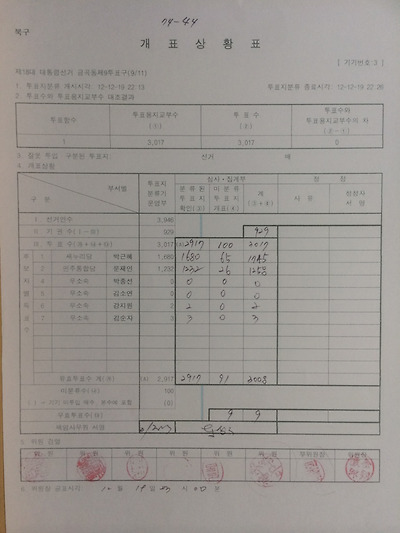 북구
74-44
개 표 상 황 표
[ 기기번호 3 ]
제18대 대통령선거 금곡동제9투표구(9/11)
1. 투표지분류 개시시각 : 12-12-19 22:13 투표지분류 종료시각 : 12-12-19 22:26
2. 투표수와 투표용지교부수 대조결과
투표함수 투표용지교부수 (①) 투표수 (②) 투표수와 투표용지교부수의 차 (②-①)
1 3,017 3,017 0
3. 잘못 투입·구분된 투표지 : 선거 매
4. 개표상황
구 분 부서별 투표지 분류기 운영부 심사·집계부
분류된 투표지 확인(③) 미분류 투표지 개표(④) 계 (③+④)
사유
Ⅰ. 선거인수 3,946
Ⅱ. 기 권 수 929 929
3,017 2917 100 3017
1 새누리당 박근혜 1,680 1680 65 1745
2 민주통합당 문재인 1,232 1232 26 1258
4 무소속 박종선 0 0 0 0
5 무소속 김소연 0 0 0 0
6 무소속 강지원 2 2 0 2
7 무소속 김순자 3 3 0 3
유효투표수 계 2,917 2917 91 3008
미분류수 100
(0)
무효투표수 9 9
책임사무원 서명
5. 위원 검열
위 원 위 원 위 원 위 원 위 원 위 원 부위원장 위원장
6. 위원장 공표시각 : 12 월 19 일 23 시